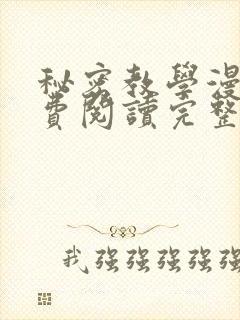 秘密教學漫
費閱讀完整
我强强强强强